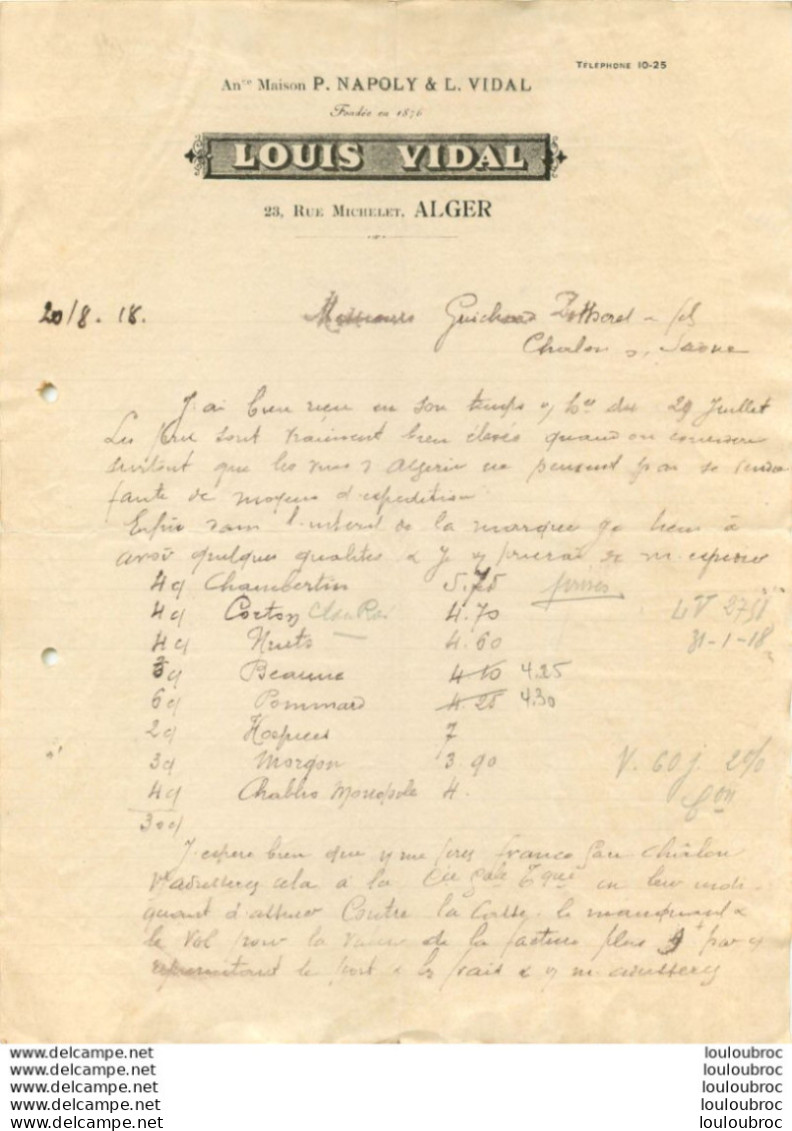 TÉLÉPHONE 10-25
Anne Maison P. NAPOLY & L. VIDAL
Fondée en 1876
LOUIS VIDAL
23, RUE MICHELET, ALGER
20/8.18. Messieurs Guichard Potheret & fils
Chalon s/ Saone
J'ai bien reçu en son temps v/ du 29 Juillet
Les prix sont vraiment bien élevés quand on considere
surtout que les vins d'Algerie ne peuvent pas se vendre
faute de moyens d'expedition
Enfin dans l'interet de la marque je tiens à
avoir quelques qualites & je v/ prierai de m'expedier
4q Chambertin 5.75
4q Corton Clos Roi 4.70 LV 2751
4q Nuits 4.60 31-1-18
3q Beaune 4.10 4.25
6q Pommard 4.25 4.30
2q Hospices 7
3q Morgon 3.90 V. 60j 2%
4q Chablis Monopole 4.
30q
J'espere bien que v/ me ferez franco gare Châlon
V/ adresserez cela à la Cie Gale Tque en leur indi-
quant d'assurer contre la casse, le manquant &
le vol pour la valeur de la facture plus
representant le port & les frais & v/ m'adresserez
www.delcampe.net louloubroc
www.delcampe.net louloubroc
www.delcampe.net louloubroc
www.delcampe.net louloubroc
www.delcampe.net louloubroc